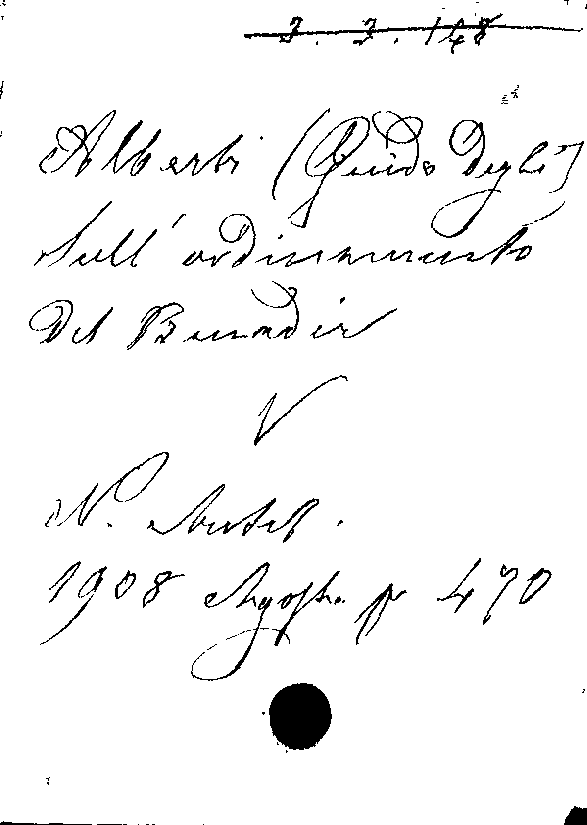 2. 3. 148
Alberti (Guido Degli)
Sull' ordinamento
del Benadir
V
N. Antol.
1908 Agosto p 470